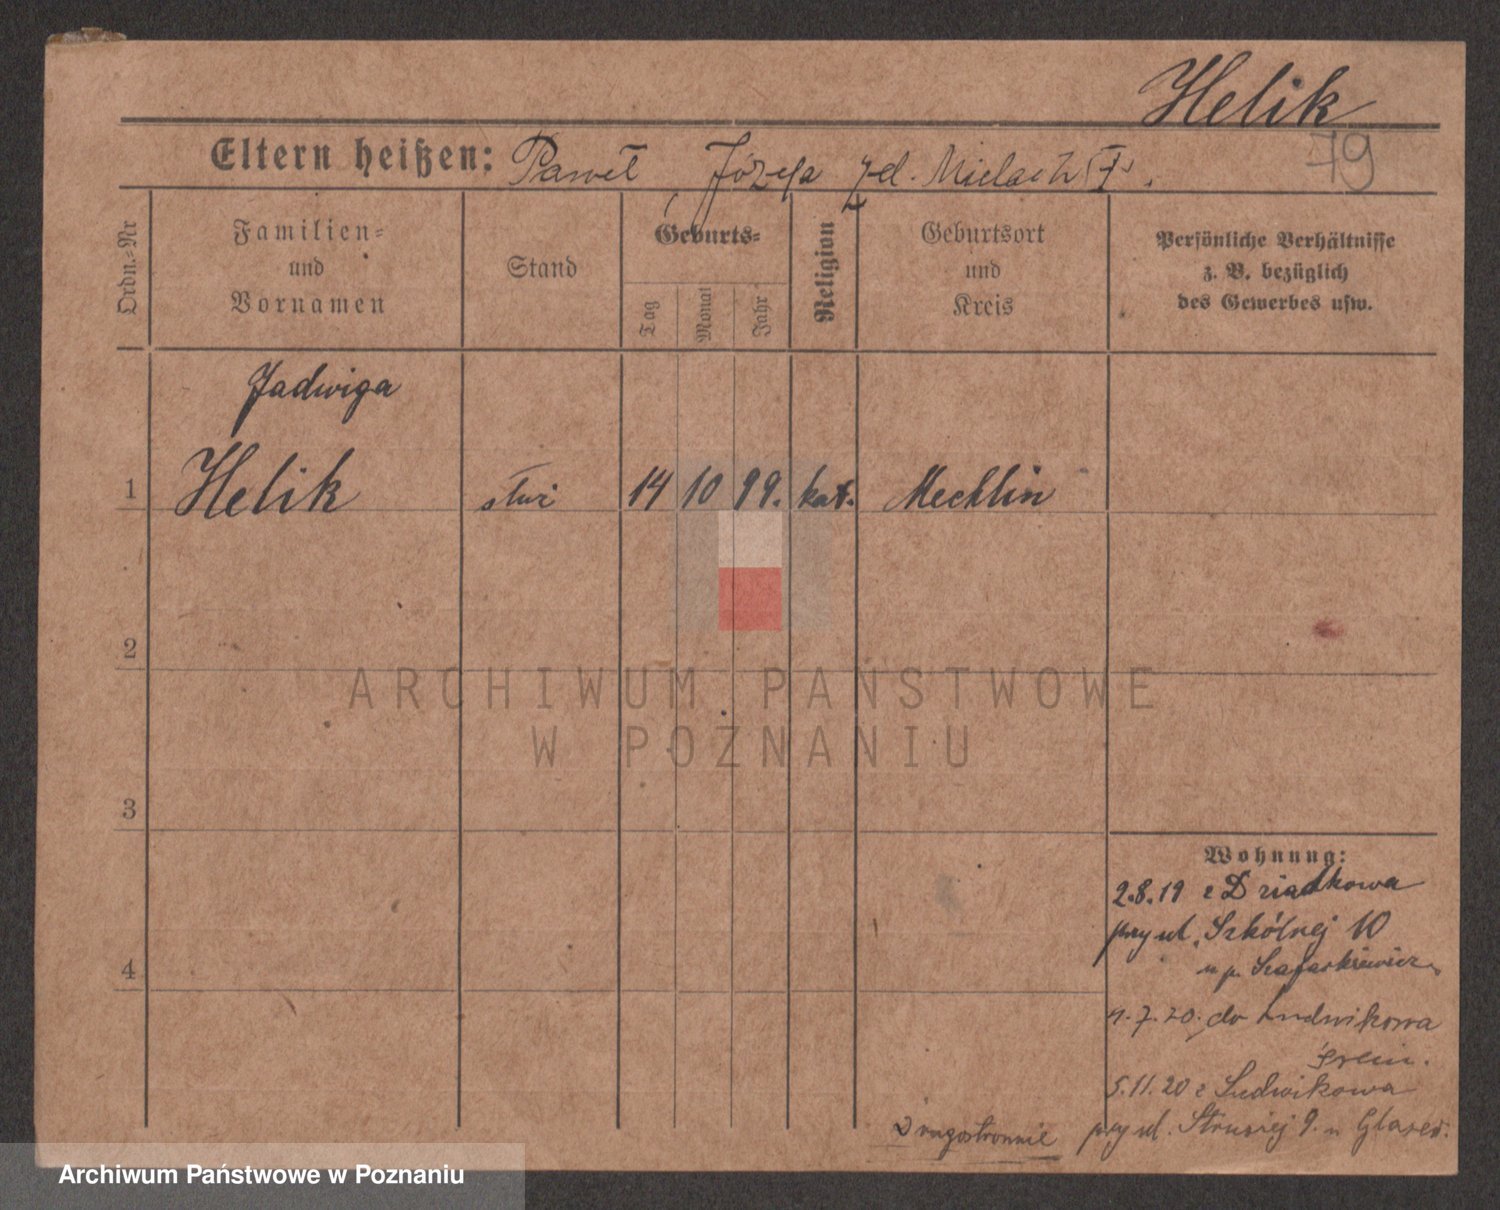 Helik
79
Eltern heißen: Paweł Józefa zd. Mielach
Ordn.-Nr
Familien=
und
Vornamen
Stand
Geburts=
Tag
Monat
Jahr
Religion
Geburtsort
und
Kreis
Persönliche Verhältnisse
z. B. bezüglich
des Gewerbes usw.
Jadwiga
1 Helik służ 14 10 99. kat. Mechlin
2
3
4
Wohnung:
2.8.19 z Dziadkowa
przy ul. Szkólnej 10
u p. Szafarkiewicz
7.20. do Ludwikowa
Śrem.
5.11.20 z Ludwikowa
przy ul. Strusiej 9. u
Drugostronnie
ARCHIWUM PAŃSTWOWE
W POZNANIU
Archiwum Państwowe w Poznaniu